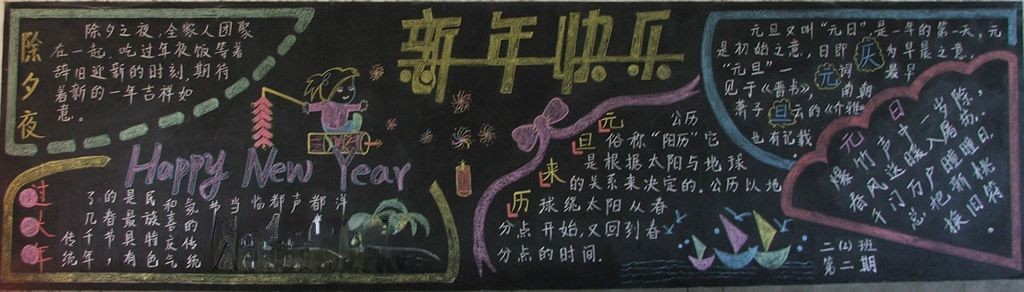 新年快乐
除夕夜
除夕之夜,全家人团聚
在一起.吃过年夜饭等着
辞旧迎新的时刻.期待
着新的一年吉祥如
意。
Happy New Year
过大年
了的是民
几春最族和喜气
传千节具特庆的
统年,有色气统
节当临都声都洋
元旦来历
公历
俗称“阳历”它
是根据太阳与地球
的关系来决定的.公历以地
球绕太阳从春
分点开始,又回到春
分点的时间.
元旦又叫“元日”是一年的第一天,元
是初始之意,日即为早晨之意,
“元旦”一词最早
见于《晋书》,南朝
萧子云的《介雅》
也有记载
元旦庆
元日
爆竹声中一岁除,
春风送暖入屠苏.
千门万户曈曈日.
总把新桃
换旧符.
二(2)班
第二期